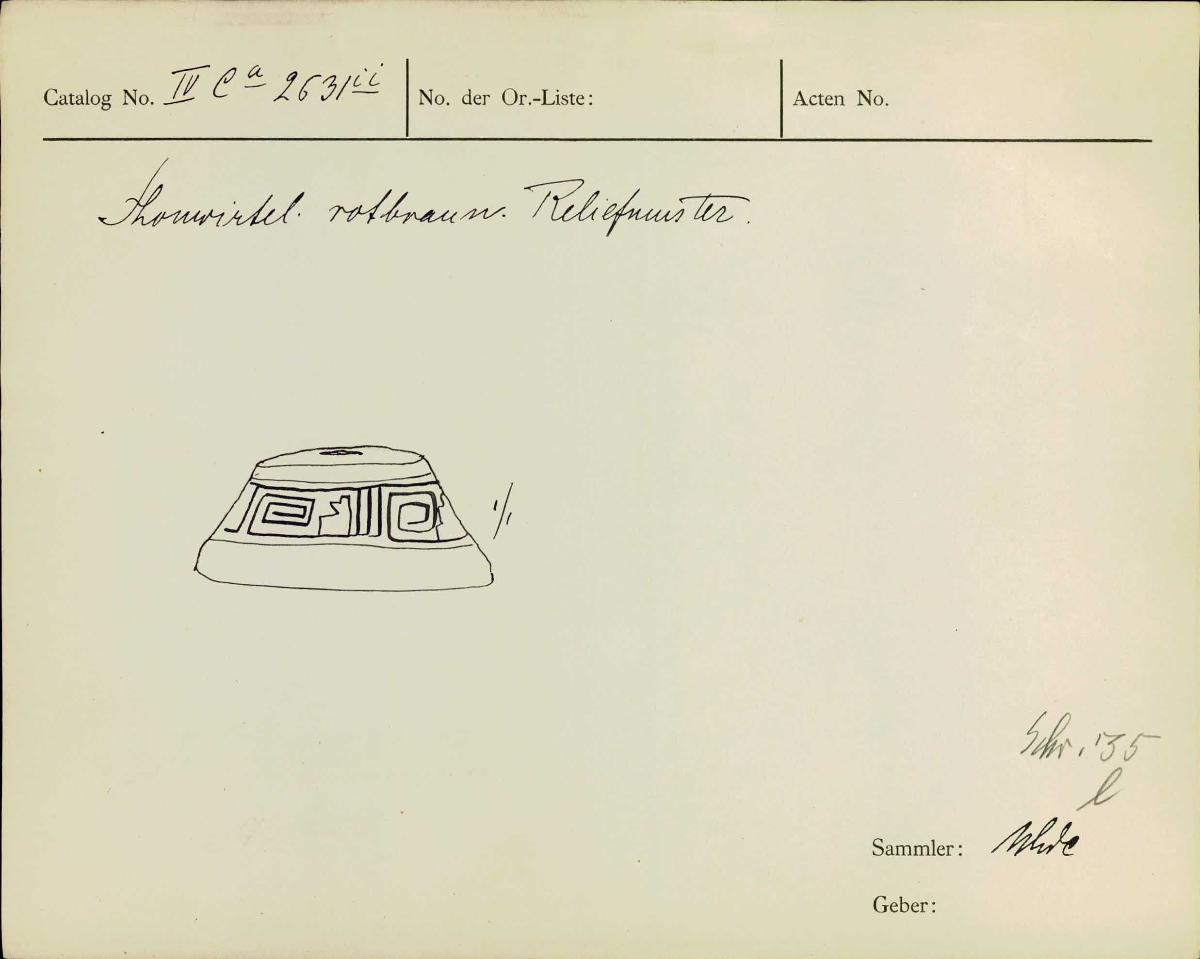 Catalog No. IV Ca 2631 ii
No. der Or.-Liste:
Acten No.
Thonwirtel. rotbraun. Reliefmuster.
1/1
Schr. '35
l
Sammler: Uhde
Geber: